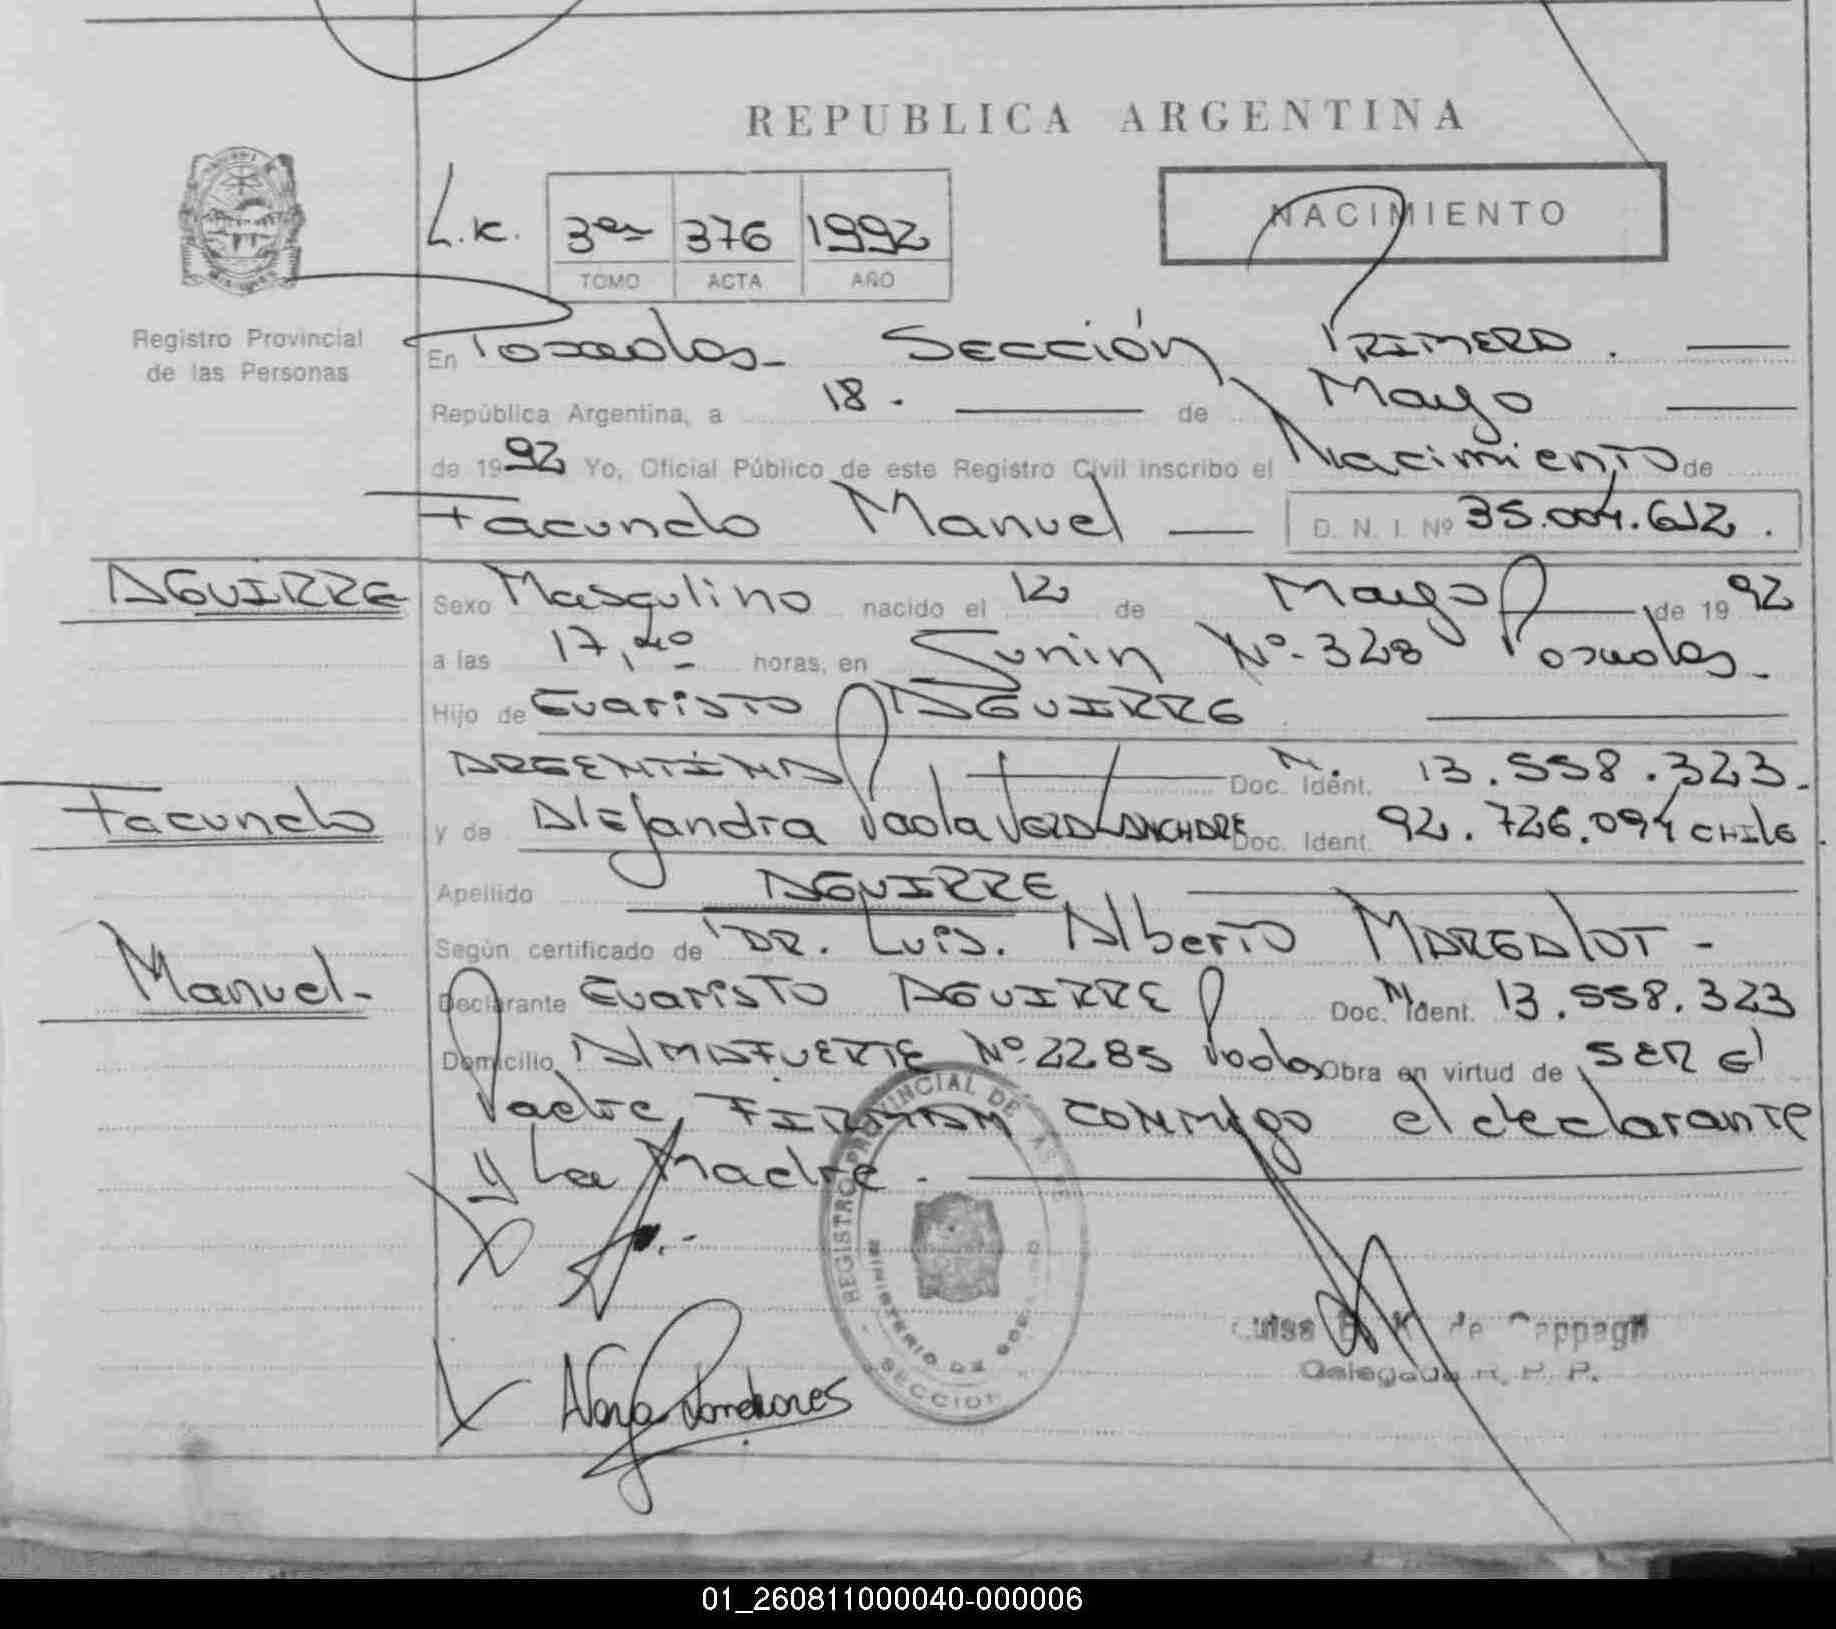 REPUBLICA ARGENTINA
NACIMIENTO
L.K. 3er 376 1992
TOMO ACTA AÑO
Registro Provincial
de las Personas
En Posadas - Sección PRIMERA.
República Argentina, a 18. de Mayo
de 1992 Yo, Oficial Público de este Registro Civil inscribo el Nacimiento de
Facundo Manuel D. N. I. Nº 35.004.612.
AGUIRRE
Sexo Masculino nacido el 12 de Mayo de 1992
a las 17,40 horas, en Junin Nº 328 Posadas -
Hijo de Evaristo AGUIRRE
ARGENTINA Doc. Ident. 13.558.323.
Facundo
y de Alejandra Paola Doc. Ident. 92.726.094 CHILE
Apellido AGUIRRE
Manuel -
Según certificado de DR. Luis. Alberto MARGALOT -
Declarante Evaristo AGUIRRE Doc. Ident. 13.558.323
Domicilio ALMAFUERTE Nº 2285 Obra en virtud de SER El
Padre, FIRMAN CONMIGO el declarante
y La Madre.
REGISTRO PROVINCIAL DE LAS PE
MINISTERIO DE GOBIERNO
SECCION
Luisa de
Delegada R. P. P.
01_260811000040-000006